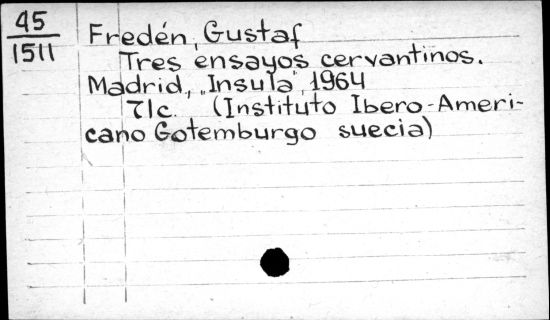 45
1511
Fredén, Gustaf
Tres ensayos cervantinos.
Madrid, „Insula", 1964
71c. (Instituto Ibero-Ameri-
cano Gotemburgo suecia)